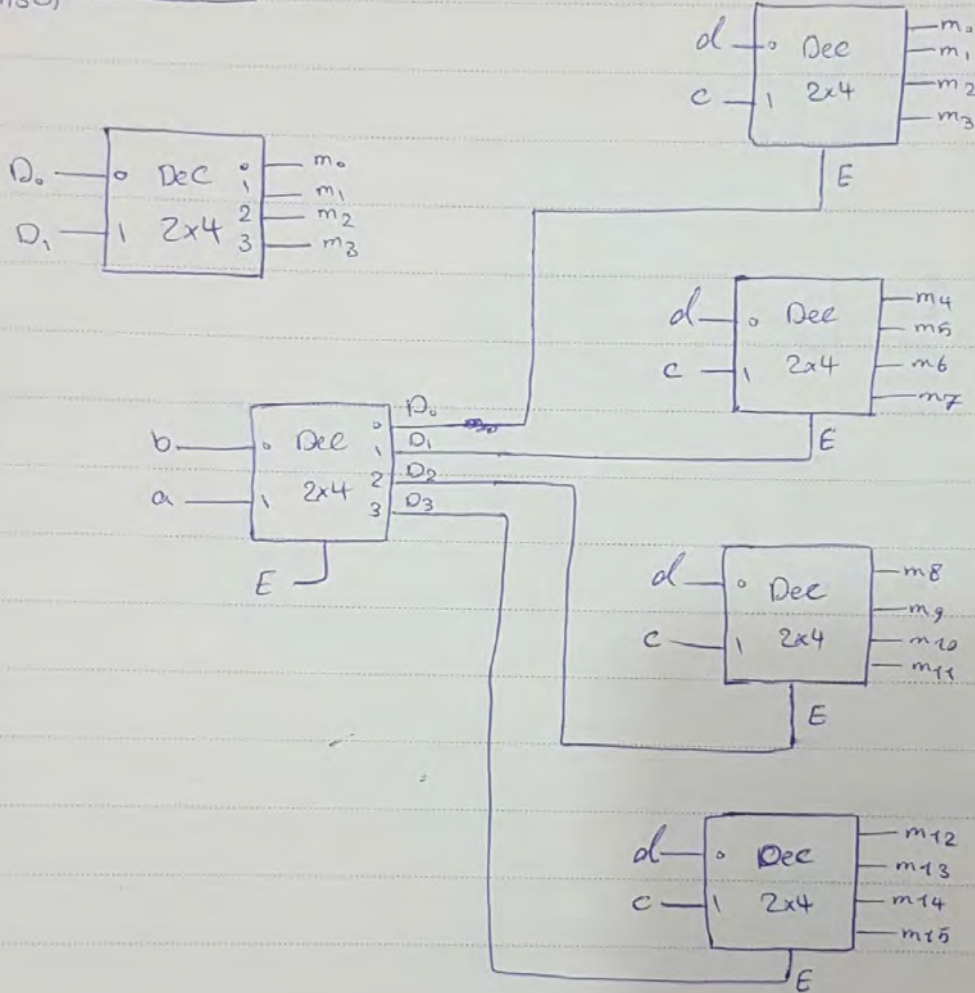 d 0 Dec m0
m1
c 1 2x4 m2
m3
E
D0 0 Dec 0 m0
1 m1
D1 1 2x4 2 m2
3 m3
d 0 Dec m4
m5
c 1 2x4 m6
m7
E
b 0 Dec 0 D0
1 D1
a 1 2x4 2 D2
3 D3
E
d 0 Dec m8
m9
c 1 2x4 m10
m11
E
d 0 Dec m12
m13
c 1 2x4 m14
m15
E